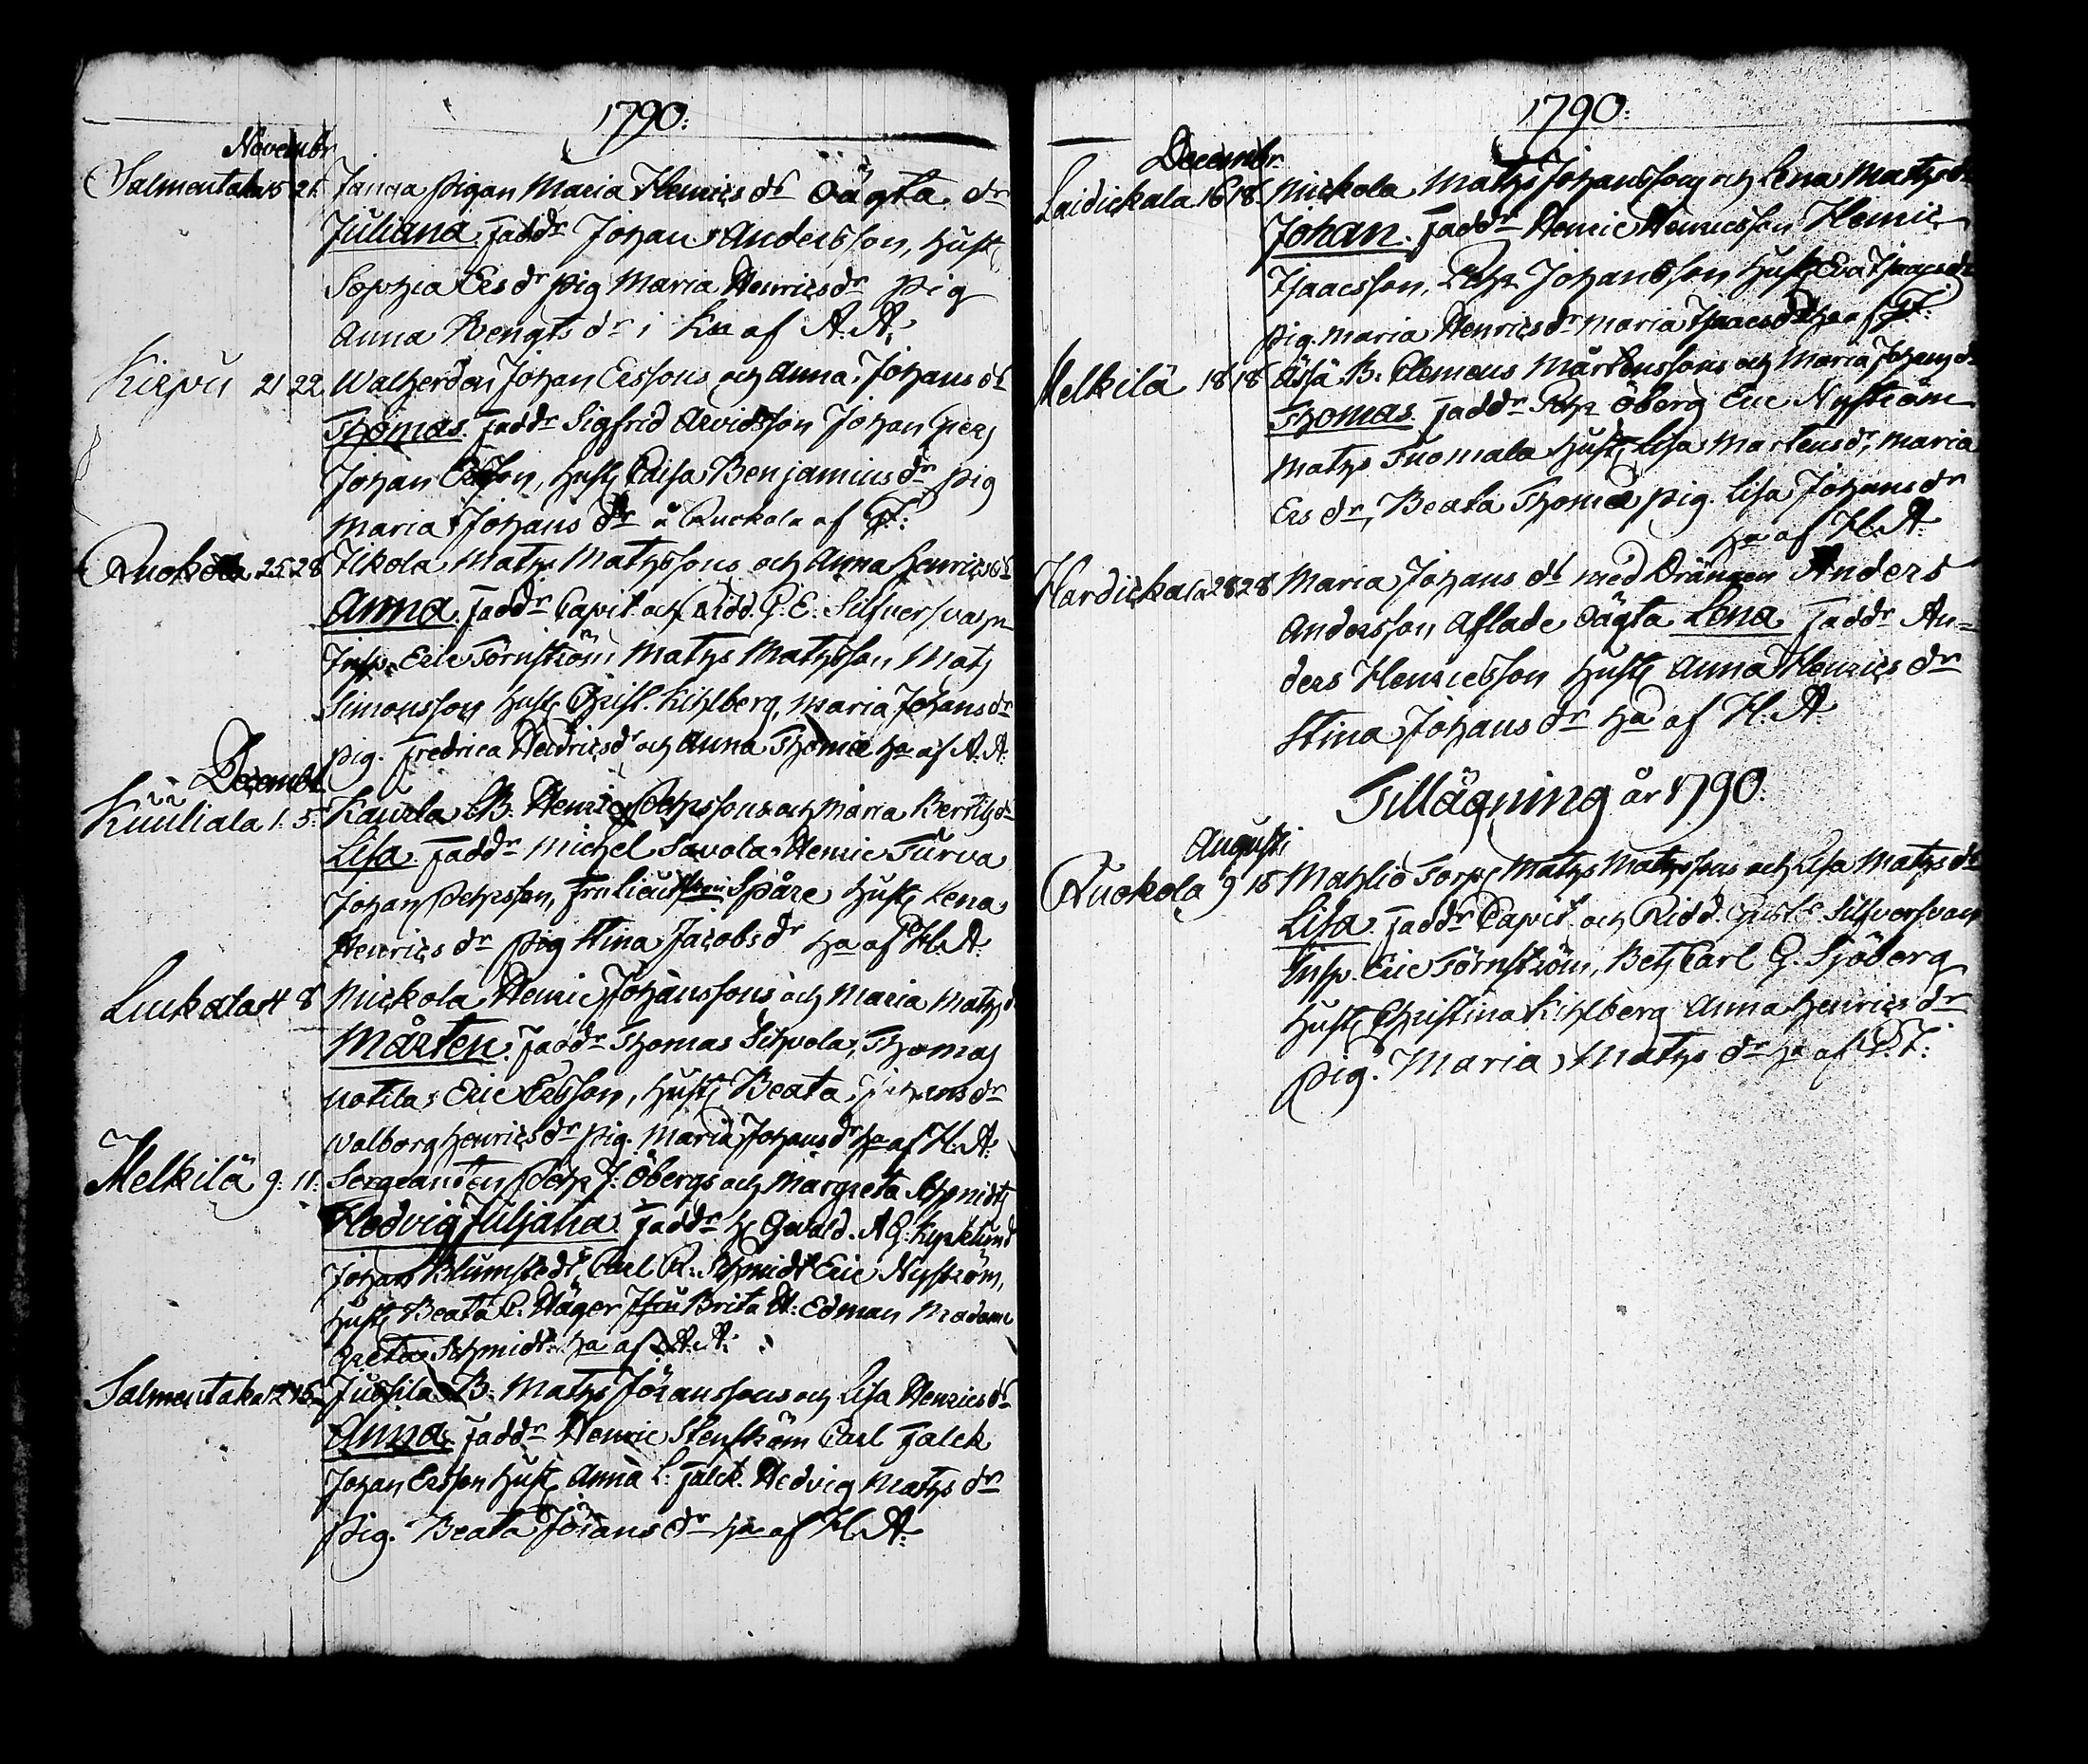 1790:
Novembr
Salmentaka 15 21. Janna pigan Maria Henrics ds oägta dr
Juliana. Faddr Johan Andersson, hust.
Sophia Ers dr pig Maria Henricsdr pig
Anna Bengts dr i Kn af A. A:
Kirpu 21 22 Johan Erssons och Anna Johans ds
Thomas. Faddr Sigfrid Arvidsson Johan
Johan Ersson, hust. Caisa Benjamins dr pig
Maria Johans dr a Ruokola af
Ruokola 25 28 Ikola Maths Mathssons och Anna Henrics ds
Anna. Faddr Capit. och Ridd. G. E. Silfversvan
Insp. Eric Törnström Maths Mathsson Mats
Simonsson hust. Christ. Kihlberg, Maria Johans dr
pig. Fredrica Hendricsdr och Anna Thomæ ha af A. A:
Decembr
Kuuliala 1. 5. Kaurla B. Henric Pehrssons och Maria Bertils ds
Lisa. Faddr Michel Savola Henric Turva
Johan Pehrsson, Fru Lieut. Spåre hust. Lena
Henrics dr pig Stina Jacobs dr ha af H. A:
Luckala 4 8 Nickola Henric Johanssons och Maria Maths ds
Mårten. Faddr Thomas Sihvola, Thomas
Notila, Eric Ersson, hust. Beata Johans dr
Walborg Henrics dr pig. Maria Johans dr ha af H. A:
Melkilä 9. 11. Sergeanten Pehr J. Öbergs och Margreta Schmidts
Hedvig Juliana. Faddr Hr Gevald. A G. Kyrklund
Johan Blumstedt, Carl R. Schmidt Eric Nyström,
hust. Beata C. Häger Jfru Brita H. Edman Madame
Greta Schmidt. ha af A. A:
Salmentaka 12 15. Jussila B. Maths Jöranssons och Lisa Henrics ds
Anna. Faddr Henric Stenström Carl Falck
Johan Ersson hust. Anna L. Falck. Hedvig Maths dr
pig. Beata Jörans dr ha af H. A:
1790:
Decembr.
Laidickala 16 18. Nickola Maths Johanssons och Lena Maths ds
Johan. Faddr Henric Henricsson Henric
Isaacsson, Pehr Johansson hust. Eva Isaacs dr
pig. Maria Henrics dr Maria Isaacs dr ha af
Melkilä 18 18 B. Clemens Mårtenssons och Maria Johans ds
Thomas. Faddr Pehr Öberg Eric Nyström
Maths Tuomala hust. Lisa Martensdr, Maria
Ers dr, Beata Thomæ pig. Lisa Johans dr
ha af H. A:
Hardickala 28 28 Maria Johans ds med Drängen Anders
Andersson aflade oägta Lena Faddr An=
ders Henricsson hust. Anna Henrics dr
Stina Johans dr ha af H. A:
Tillägning år 1790:
Augusti
Ruokola 9 15 Mahlio Torp. Maths Mathssons och Lisa Maths ds
Lisa. Faddr Capit. och Ridd. Silfversvan
Insp. Eric Törnström, Betj. Carl G. Sjöberg
hust. Christina Kihlberg Anna Henrics dr
pig. Maria Maths dr ha af